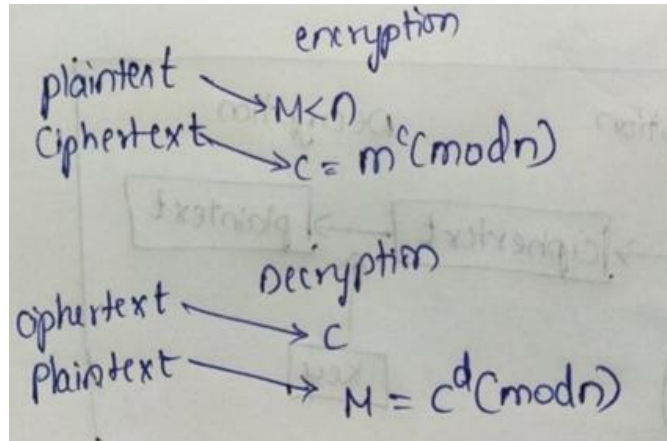 encryption
plaintext → M<n
Ciphertext → C = m^c(mod n)
Decryption
Ciphertext → C
Plaintext → M = C^d(mod n)